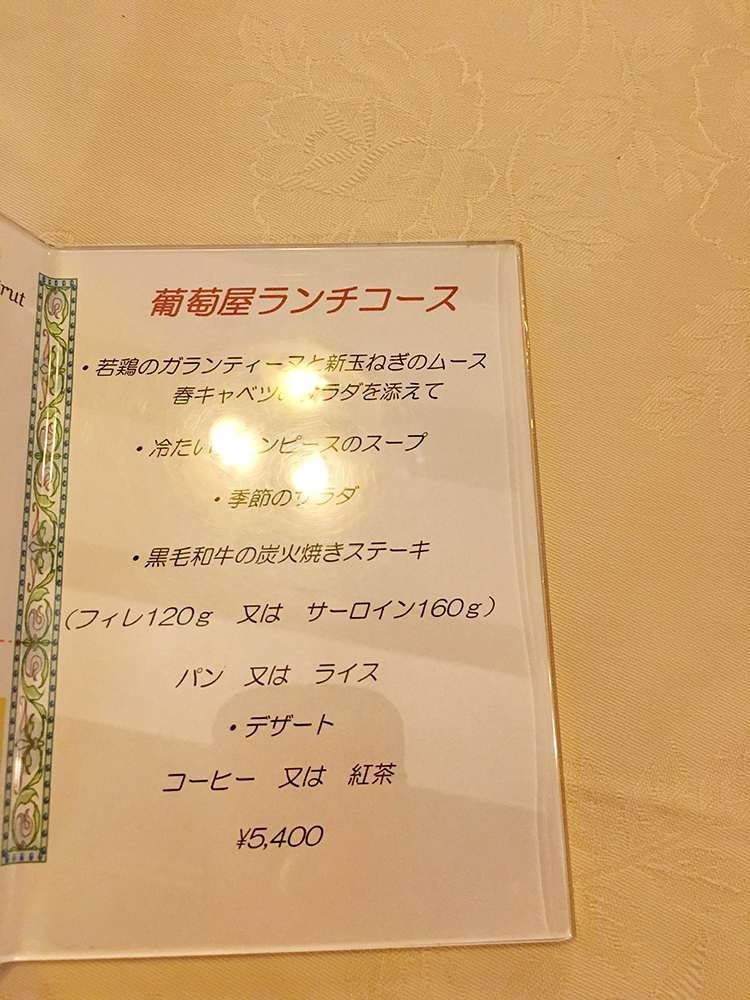 rut
葡萄屋ランチコース
・若鶏のガランティーヌと新玉ねぎのムース
春キャベツのサラダを添えて
・冷たい ンピースのスープ
・季節のサラダ
・黒毛和牛の炭火焼きステーキ
（フィレ120g 又は サーロイン160g）
パン 又は ライス
・デザート
コーヒー 又は 紅茶
¥5,400